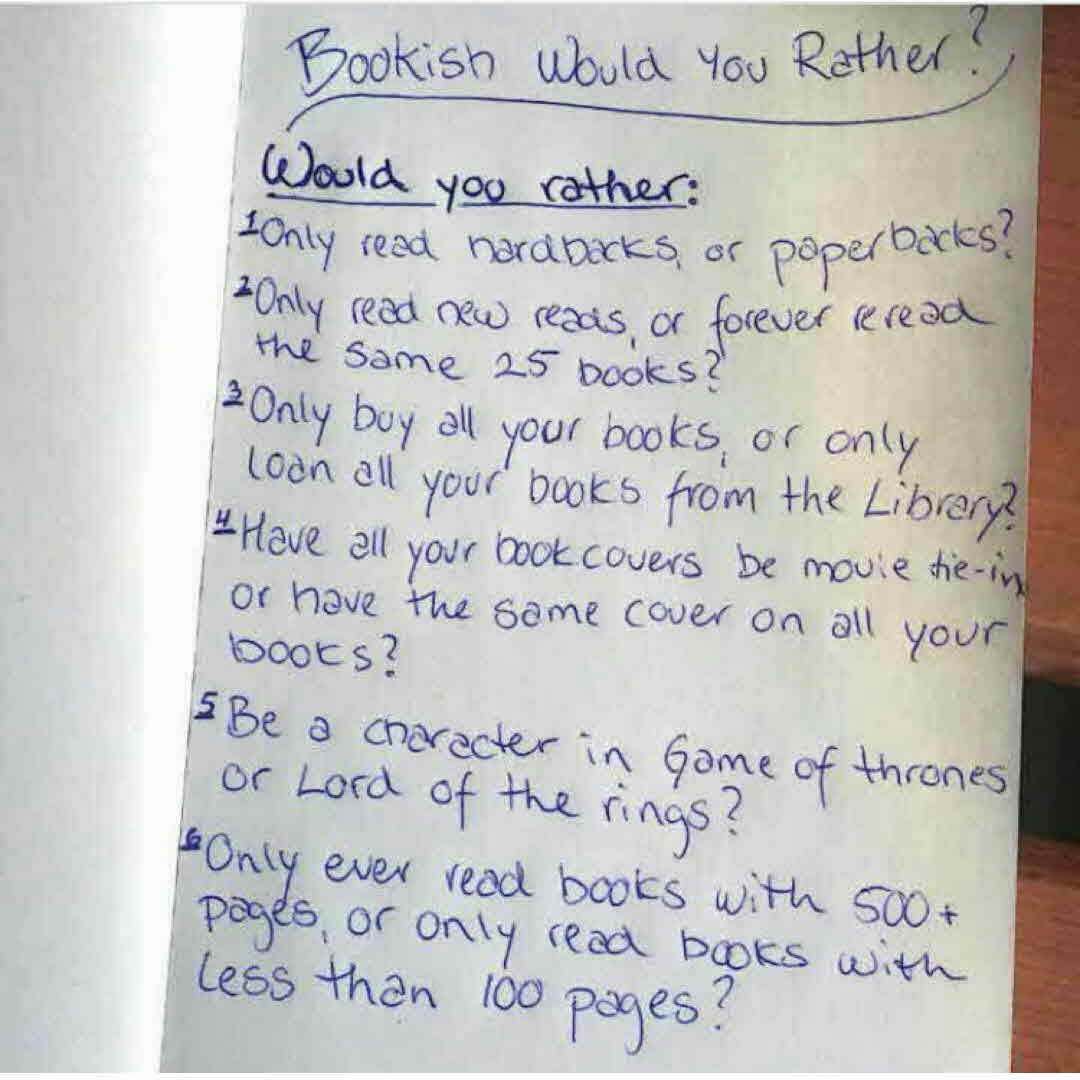 Bookish Would You Rather?
Would you rather:
1 Only read hardbacks, or paperbacks?
2 Only read new reads, or forever reread
the same 25 books?
3 Only buy all your books, or only
loan all your books from the Library?
4 Have all your book covers be movie tie-in,
or have the same cover on all your
books?
5 Be a character in Game of thrones
or Lord of the rings?
6 Only ever read books with 500+
pages, or only read books with
less than 100 pages?